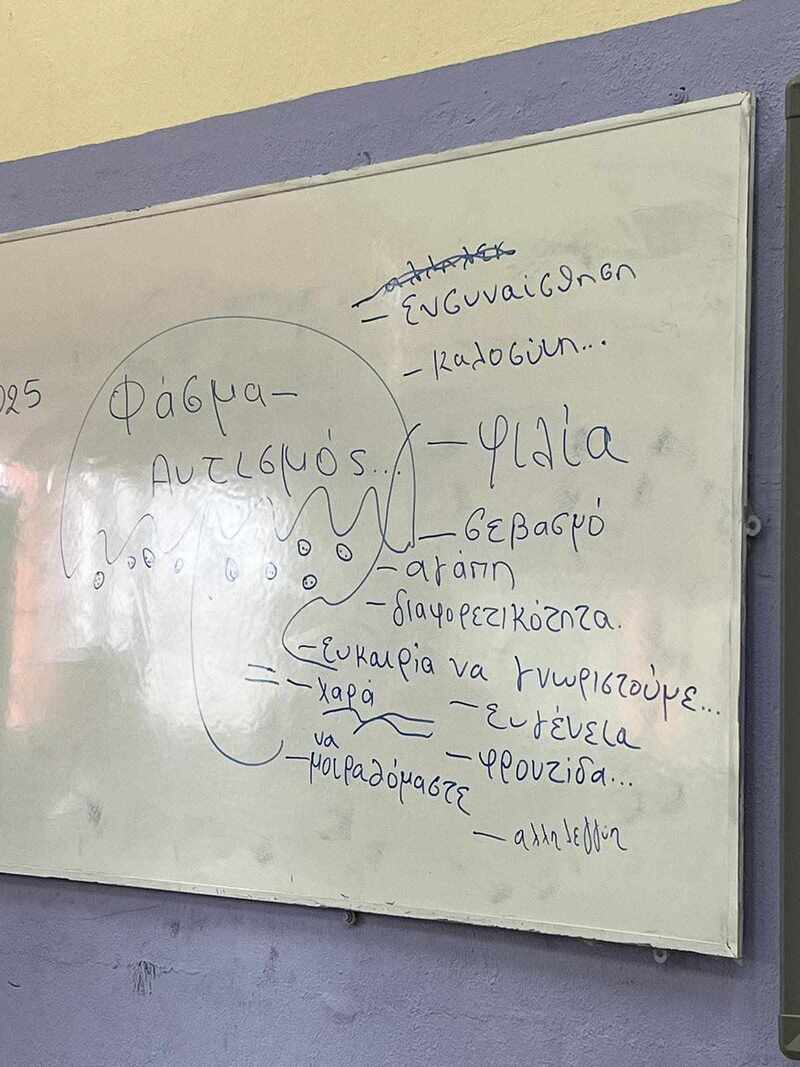 025
Φάσμα-
Αυτισμός...
- Ενσυναίσθηση
- καλοσύνη...
- φιλία
- σεβασμό
- αγάπη
- διαφορετικότητα.
- Ευκαιρία να γνωριστούμε...
= - χαρά
- Ευγένεια
να
- μοιραζόμαστε
- φροντίδα...
- αλληλεγγύη